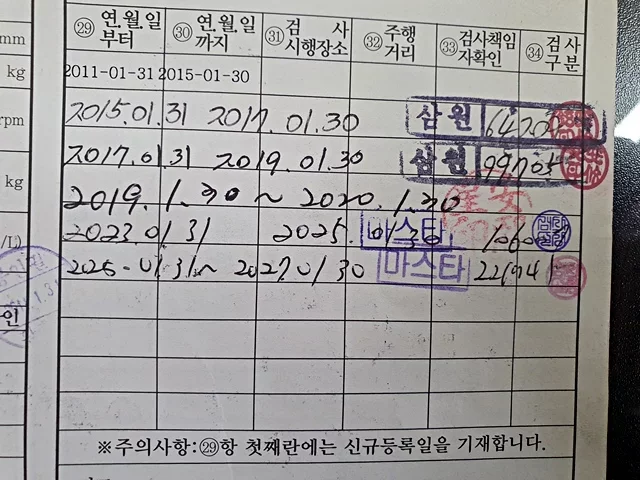 mm
kg
rpm
kg
/L)
인
㉙ 연.월.일 부터 ㉚ 연.월.일 까지 ㉛ 검사 시행장소 ㉜ 주행 거리 ㉝ 검사책임 자확인 ㉞ 검사 구분
2011-01-31 2015-01-30
2015.01.31 2017.01.30 삼원
2017.01.31 2019.01.30 삼원
2019.1.30 ~ 2020.1.30
2023.01.31 2025.01.30 마스타
2025-01.31~ 2027.01.30 마스타
※주의사항:㉙항 첫째란에는 신규등록일을 기재합니다.